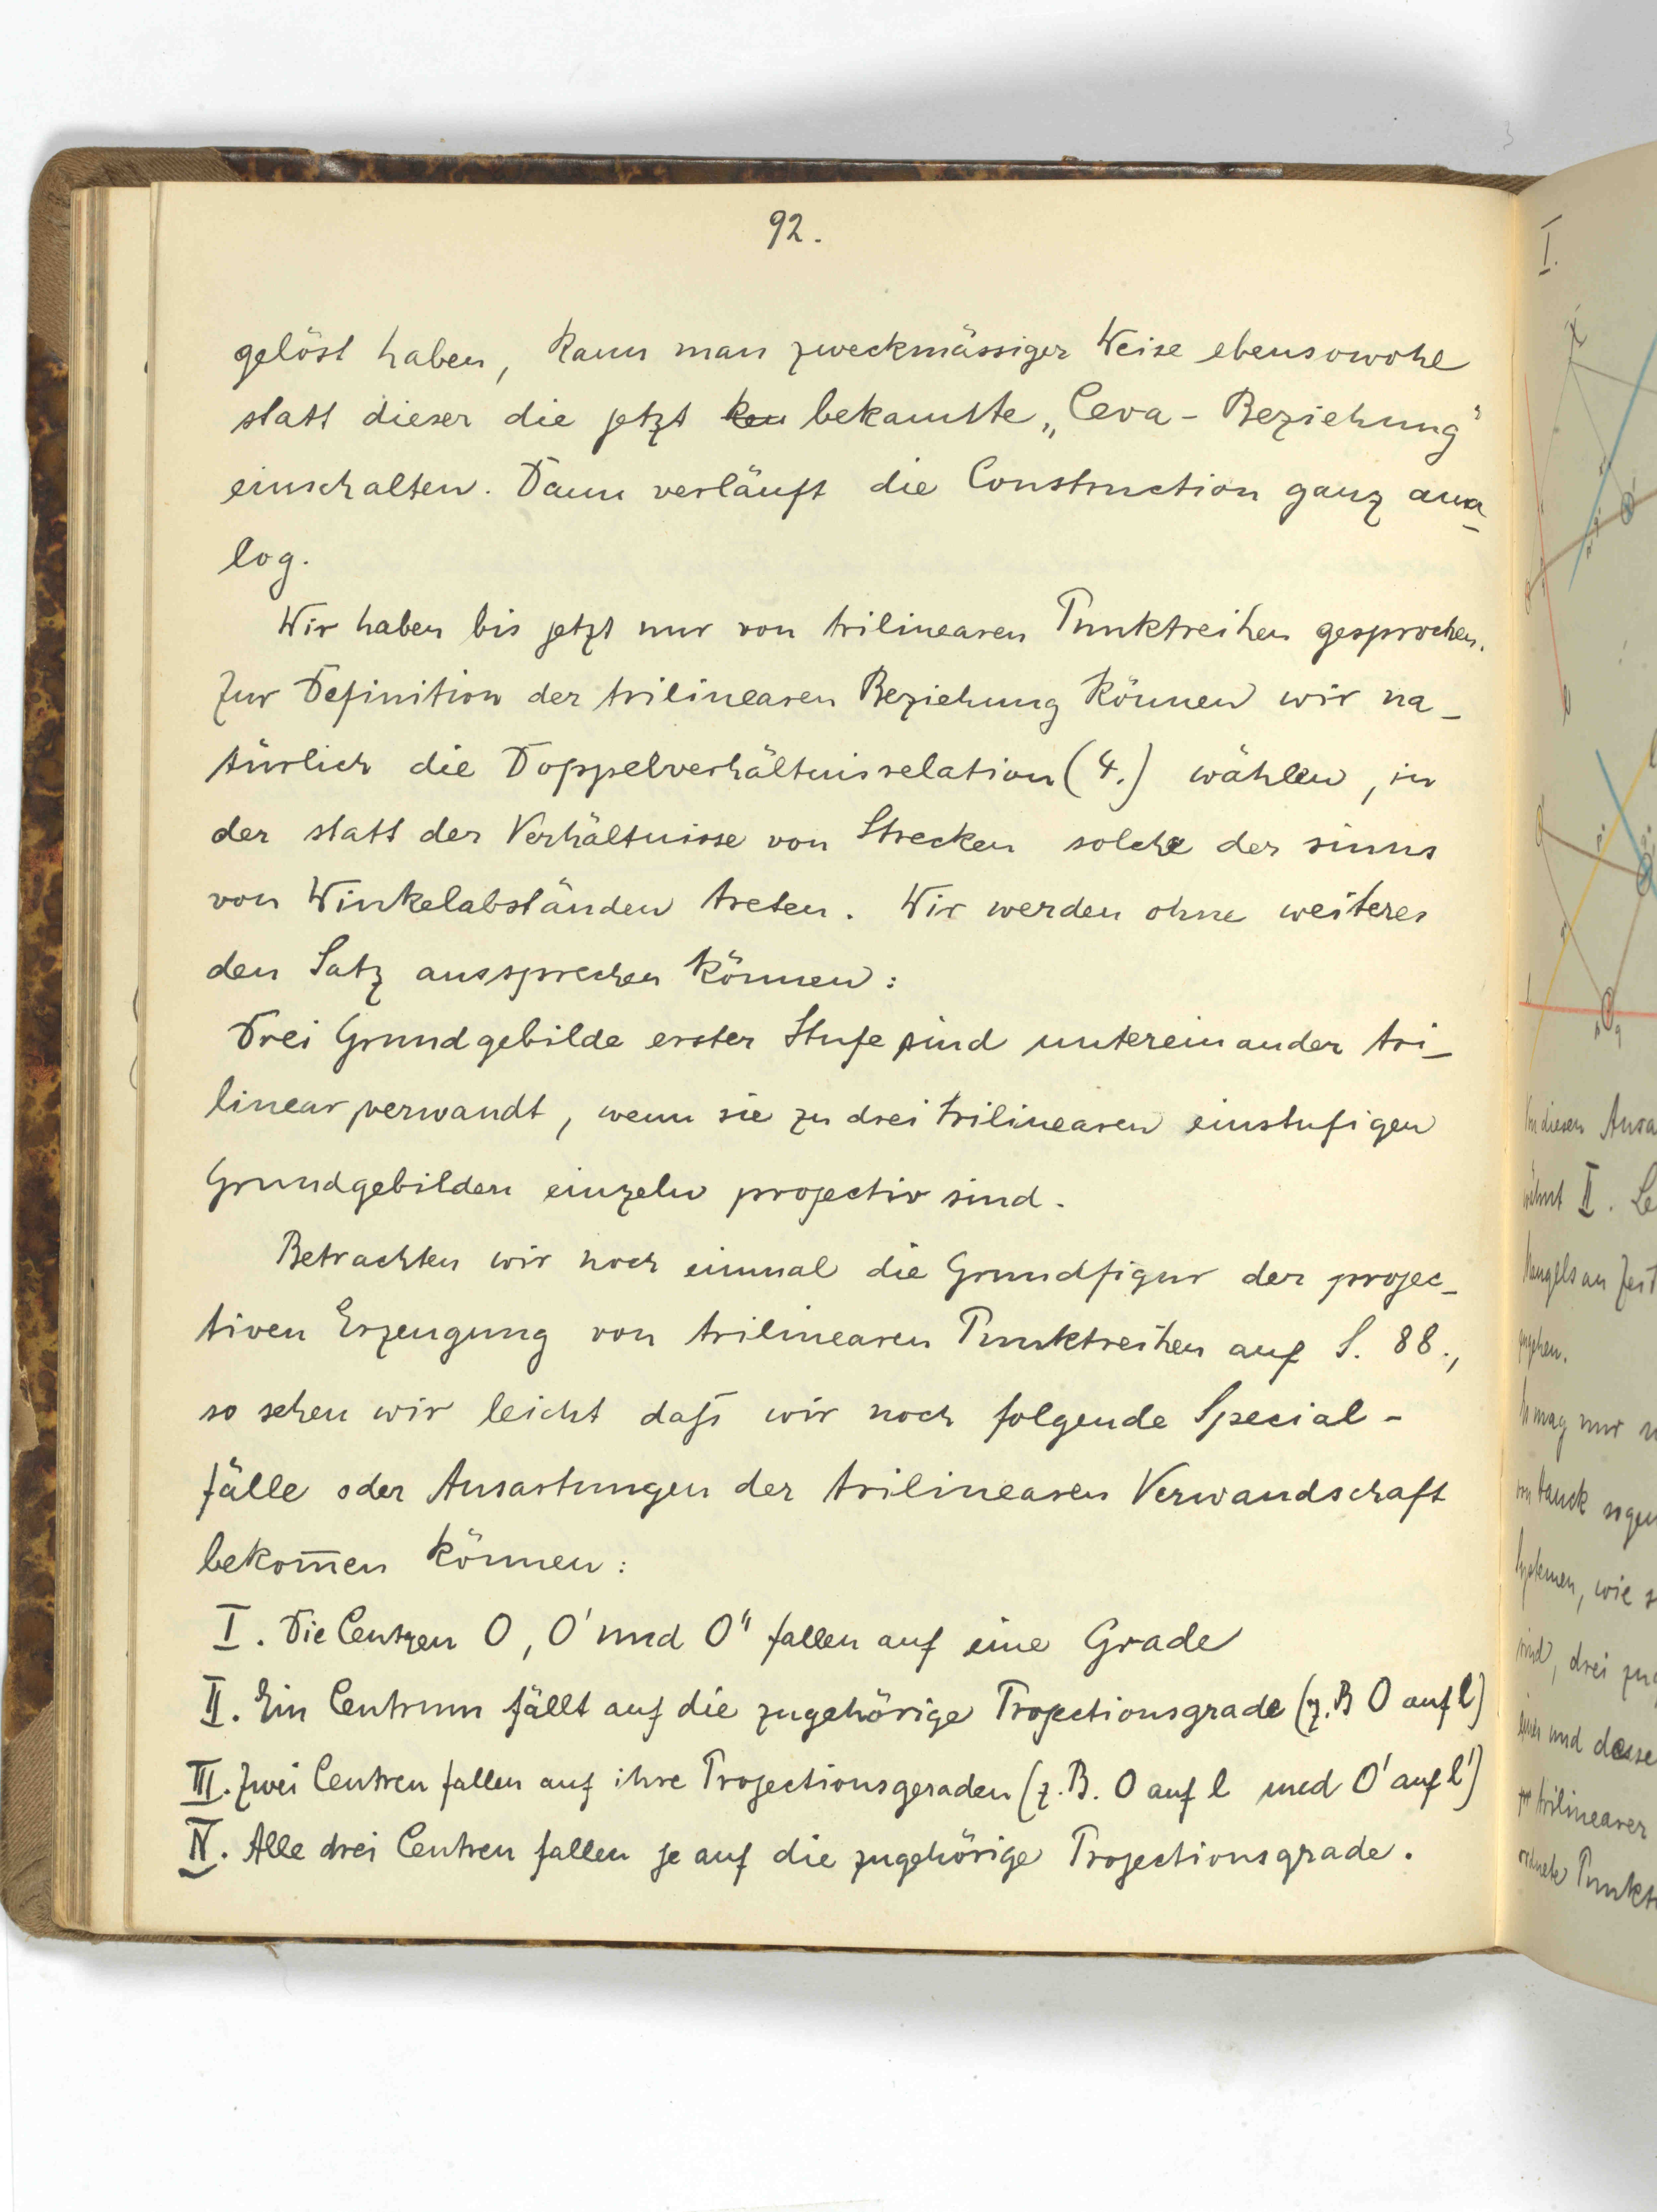 92.
gelöst haben, kann man zweckmässiger Weise ebensowohl
statt dieser die jetzt bekannte „Ceva-Beziehung"
einschalten. Dann verläuft die Construction ganz ana-
log.
Wir haben bis jetzt nur von trilinearen Punktreihen gesprochen.
Zur Definition der trilinearen Beziehung können wir na-
türlich die Doppelverhältnisrelation (4.) wählen, in
der statt der Verhältnisse von Strecken solche der sinus
von Winkelabständen treten. Wir werden ohne weiteres
den Satz aussprechen können:
Drei Grundgebilde erster Stufe sind untereinander tri-
linear verwandt, wenn sie zu drei trilinearen einstufigen
Grundgebilden einzeln projectiv sind.
Betrachten wir noch einmal die Grundfigur der projec-
tiven Erzeugung von trilinearen Punktreihen auf S. 88.,
so sehen wir leicht daß wir noch folgende Special-
fälle oder Ausartungen der trilinearen Verwandschaft
bekom̅en können:
I. Die Centren O, O' und O'' fallen auf eine Grade
II. Ein Centrum fällt auf die zugehörige Projectionsgrade (z.B O auf l)
III. Zwei Centren fallen auf ihre Projectionsgeraden (z.B. O auf l und O' auf l')
IV. Alle drei Centren fallen je auf die zugehörige Projectionsgrade.
I.
II. Le
gegeben.
mag nur
wie
sind, drei
und
trilinearer
Punkt